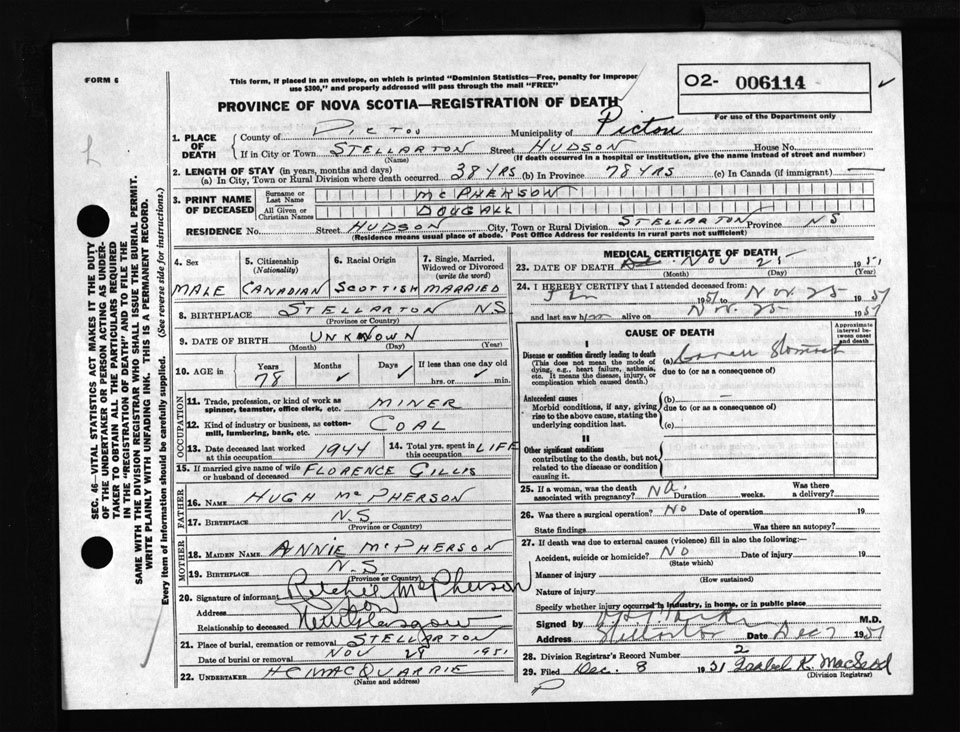 FORM 6
This form, if placed in an envelope, on which is printed "Dominion Statistics—Free, penalty for improper
use $300," and properly addressed will pass through the mail "FREE"
PROVINCE OF NOVA SCOTIA—REGISTRATION OF DEATH
O2- 006114
For use of the Department only
1. PLACE OF DEATH County of Pictou Municipality of Pictou
If in City or Town STELLARTON Street HUDSON House No.
(Name) (If death occurred in a hospital or institution, give the name instead of street and number)
2. LENGTH OF STAY (in years, months and days)
(a) In City, Town or Rural Division where death occurred 38 YRS (b) In Province 78 YRS (c) In Canada (if immigrant) —
3. PRINT NAME OF DECEASED Surname or Last Name MCPHERSON
All Given or Christian Names DOUGALL
RESIDENCE No. Street HUDSON City, Town or Rural Division STELLARTON Province NS
(Residence means usual place of abode. Post Office Address for residents in rural parts not sufficient)
4. Sex MALE
5. Citizenship (Nationality) CANADIAN
6. Racial Origin SCOTTISH
7. Single, Married, Widowed or Divorced (write the word) MARRIED
8. BIRTHPLACE STELLARTON NS
(Province or Country)
9. DATE OF BIRTH UNKNOWN
(Month) (Day) (Year)
10. AGE in Years 78 Months ✓ Days ✓ If less than one day old hrs. or ✓ min.
OCCUPATION
11. Trade, profession, or kind of work as spinner, teamster, office clerk, etc. MINER
12. Kind of industry or business, as cotton-mill, lumbering, bank, etc. COAL
13. Date deceased last worked at this occupation 1944
14. Total yrs. spent in this occupation LIFE
15. If married give name of wife or husband of deceased FLORENCE GILLIS
FATHER
16. NAME HUGH MCPHERSON
17. BIRTHPLACE N.S.
(Province or Country)
MOTHER
18. MAIDEN NAME ANNIE MCPHERSON
19. BIRTHPLACE N.S.
(Province or Country)
20. Signature of informant Ritchie McPherson
Address son
Relationship to deceased New Glasgow
21. Place of burial, cremation or removal STELLARTON
Date of burial or removal NOV 28 1951
22. UNDERTAKER HC MACQUARRIE
(Name and address)
MEDICAL CERTIFICATE OF DEATH
23. DATE OF DEATH Nov 25 1951
(Month) (Day) (Year)
24. I HEREBY CERTIFY that I attended deceased from:
1951 to Nov. 25 1951
and last saw him alive on Nov. 25 1951
CAUSE OF DEATH
Approximate interval between onset and death
I
Disease or condition directly leading to death
(This does not mean the mode of dying, e.g., heart failure, asthenia, etc. It means the disease, injury, or complication which caused death.)
(a) Stomach
due to (or as a consequence of)
Antecedent causes
Morbid conditions, if any, giving rise to the above cause, stating the underlying condition last.
(b) —
due to (or as a consequence of)
(c)
II
Other significant conditions
contributing to the death, but not related to the disease or condition causing it.
25. If a woman, was the death associated with pregnancy? NA. Duration weeks. Was there a delivery?
26. Was there surgical operation? NO Date of operation 19
State findings Was there an autopsy?
27. If death was due to external causes (violence) fill in also the following:—
Accident, suicide or homicide? NO Date of injury 19
(State which)
Manner of injury
(How sustained)
Nature of injury
Specify whether injury occurred in industry, in home, or in public place
Signed by M.D.
Address Stellarton Date Dec 7 1951
28. Division Registrar's Record Number 2
29. Filed Dec. 8 1951 Isabel R. MacLeod
(Division Registrar)
SEC. 46—VITAL STATISTICS ACT MAKES IT THE DUTY
OF THE UNDERTAKER OR PERSON ACTING AS UNDER-
TAKER TO OBTAIN ALL THE PARTICULARS REQUIRED
IN THE "REGISTRATION OF DEATH" AND TO FILE THE
SAME WITH THE DIVISION REGISTRAR WHO SHALL ISSUE THE BURIAL PERMIT.
WRITE PLAINLY WITH UNFADING INK. THIS IS A PERMANENT RECORD.
Every item of information should be carefully supplied. (See reverse side for instructions.)